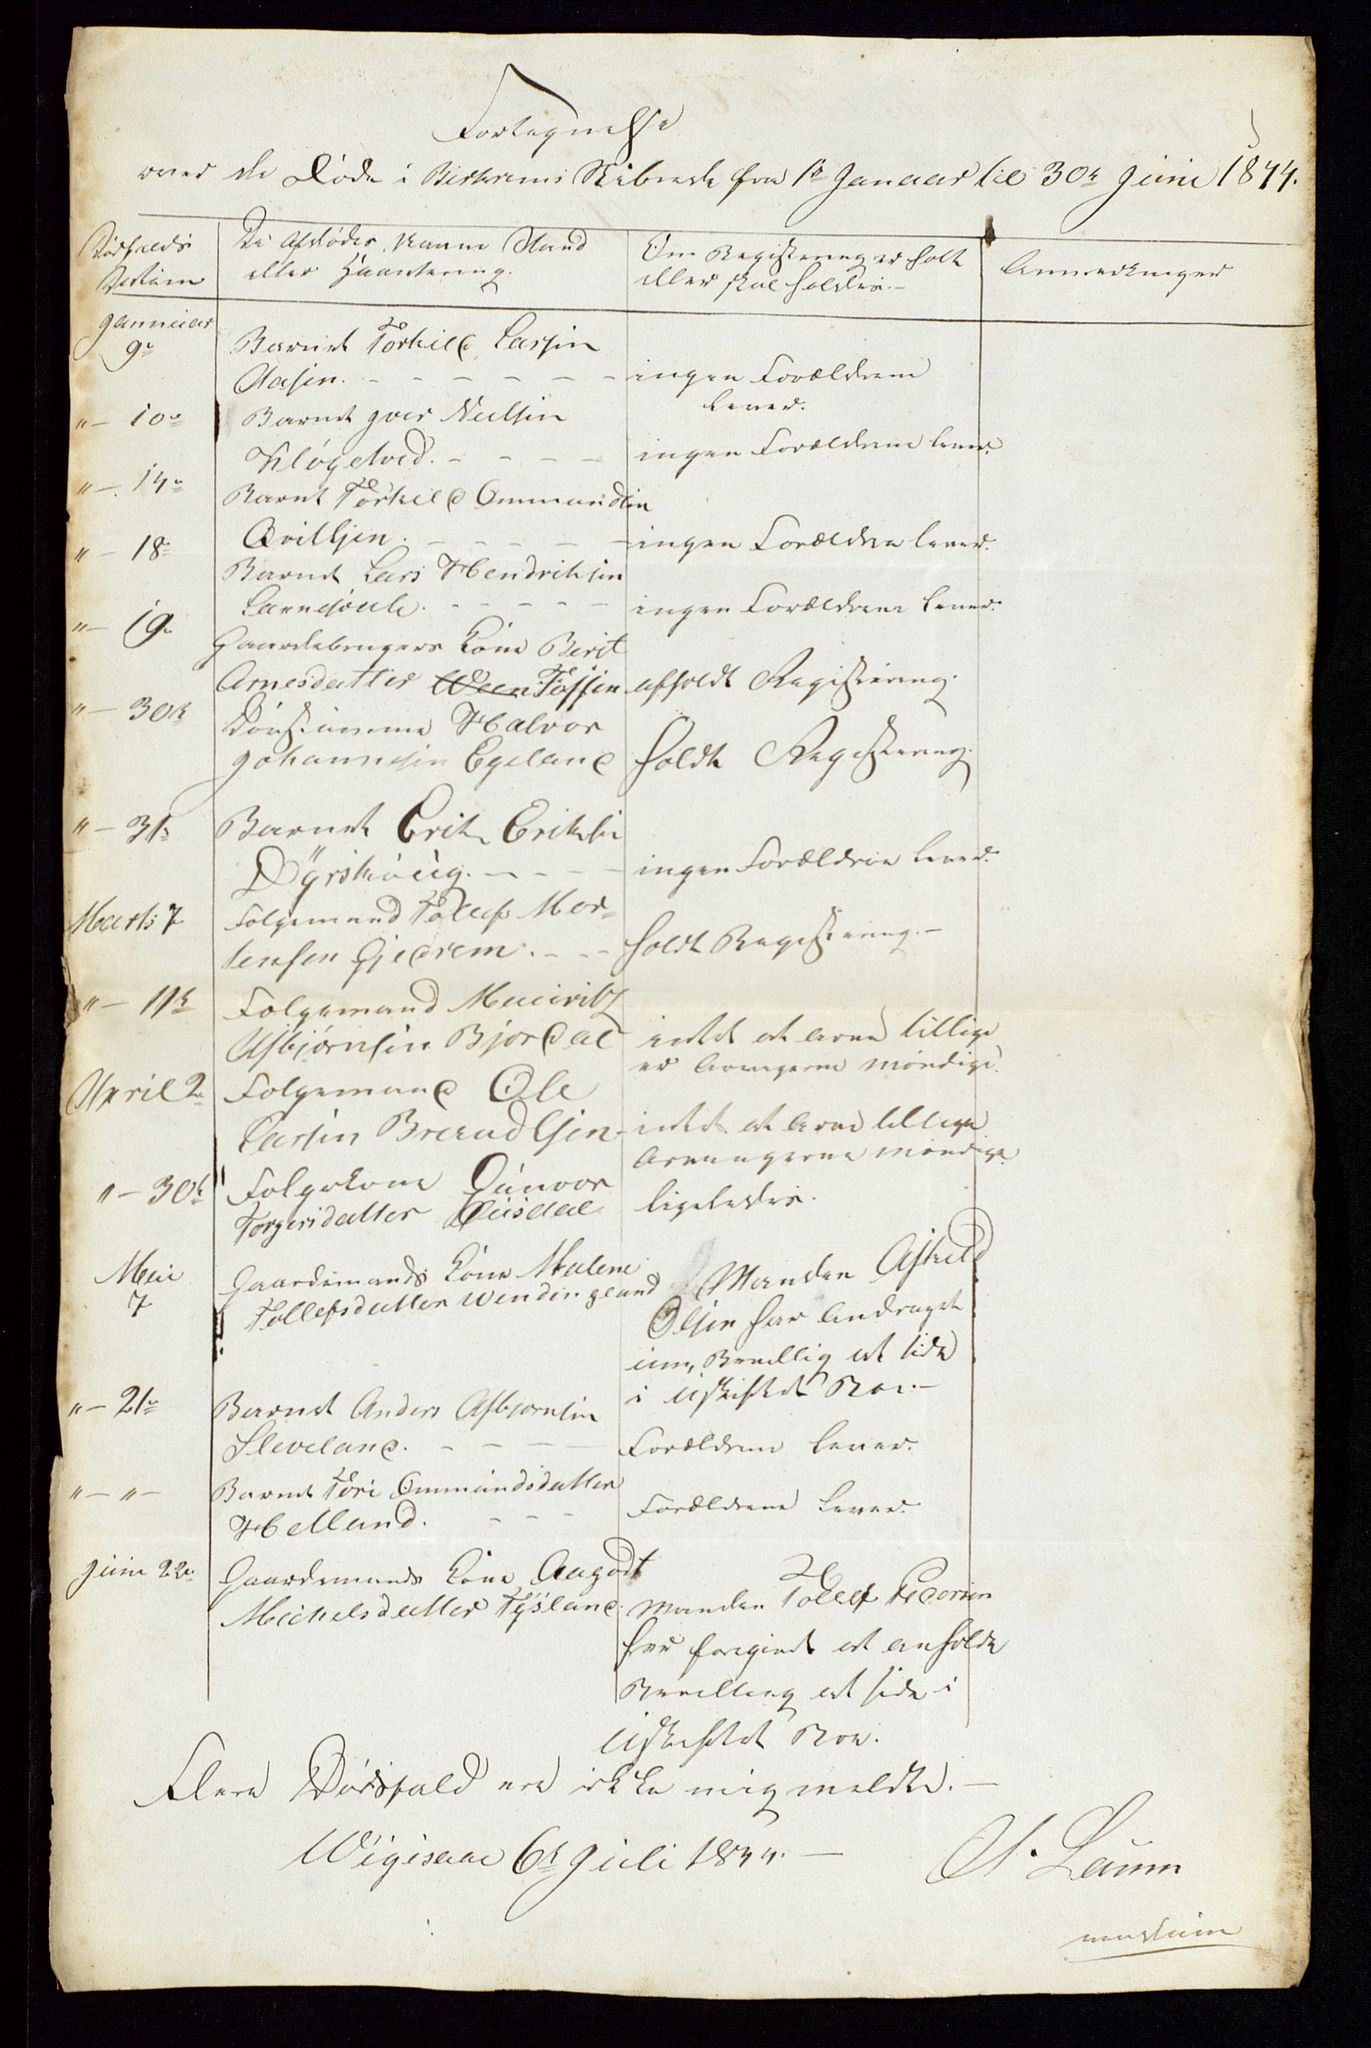 Fortegnelse
over de Døde i Birkrems Skibrede fra 1te Januar til 30te Juni 1844.
Dødsfalds Datum
De Afdødes Navne Stand eller Haantering.
Om Registrering er holdt eller skal holdes.
Anmerkninger
Januar 9de
Barnet Torkild Larsen
Aasen. - - - - - - ingen Forældrene
lever.
" - 10de Barnet Iver Neelsen
Kløgetved. - - - - - ingen Forældrene lever.
" - 14de Barnet Torkild Ommundsen
Qvidtjen. - - - - - ingen Forældrene lever.
" - 18de Barnet Lars Hendriksen
- - - - - ingen Forældrene lever.
" - 19de Gaardebrugers Kone Berit
Arnesdatter Tossen afholdt Registrering.
" - 30te Døvstumme Halvor
Johannesen Egeland holdt Registrering.
" - 31te Barnet Erik Eriksen
Dyrskoug. - - - - ingen Forældrene lever.
Marts 7 Folgemand Tollef Mor-
tensen Gjedrem. - - - holdt Registrering. -
" - 11te Folgemand Mauritz
Asbjørnsen Bjordal intet at arve tillige
er Arvingerne myndige.
April 2de Folgemand Ole
Larsen Breiudtsen intet at arve tillige
Arvingerne myndige.
" - 30te Folgekone Gunvor
Torgersdatter ligeledes.
Mai 7 Gaardemands Kone Malene
Tollefsdatter Wendingland Manden Askild
Olsen har andraget
um Bevillig at side
i uskiftet Boe. -
" - 21de Barnet Anders Asbjornsen
Sleveland. - - - - Forældrene lever.
" - " - Barnet Tori Ommundsdatter
Helland. - - - Forældrene lever.
Juni 22de Gaardemands Kone Aagodt
Michelsdatter Tysland. Manden Tollef Pedersen
har foregivet at anholde
Bevilling at side i
uskiftet Boe.
Flere Dødsfald ere ikke mig meldte. -
Wigisaae 6te Juli 1844. - A. Launn